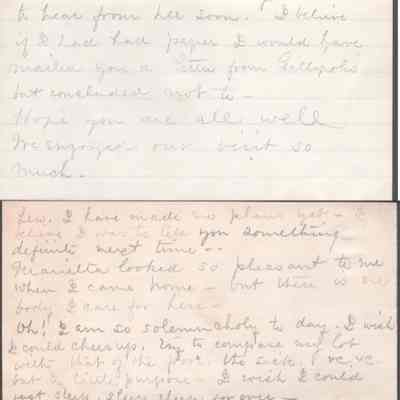 to hear from her soon. I believe
if I had had paper I would have
mailed you a letter from Gallipolis
but concluded not to -
Hope you are all well
We enjoyed our visit so
much.-
I have made no plans yet - I
I was to tell you something
definite next time --
Marietta looked so pleasant to me
when I came home - but there is one
body I care for here -
Oh! I am so solemncholy to day. I wish
I could cheer up. Try to compare my lot
with that of the poor, the sick, &c, &c.
but to little purpose - I wish I could
just sleep, sleep, sleep for ever -